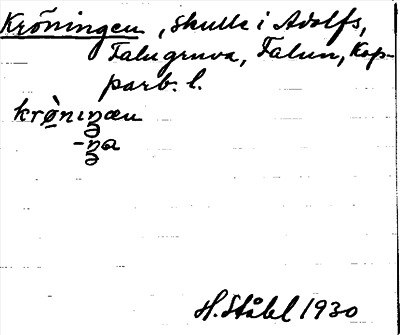 Kröningen, skulle i Adolfs,
Falugruva, Falun, Kop-
parb. l.
krø̀nıŋæn
-ŋa
H. Ståhl 1930